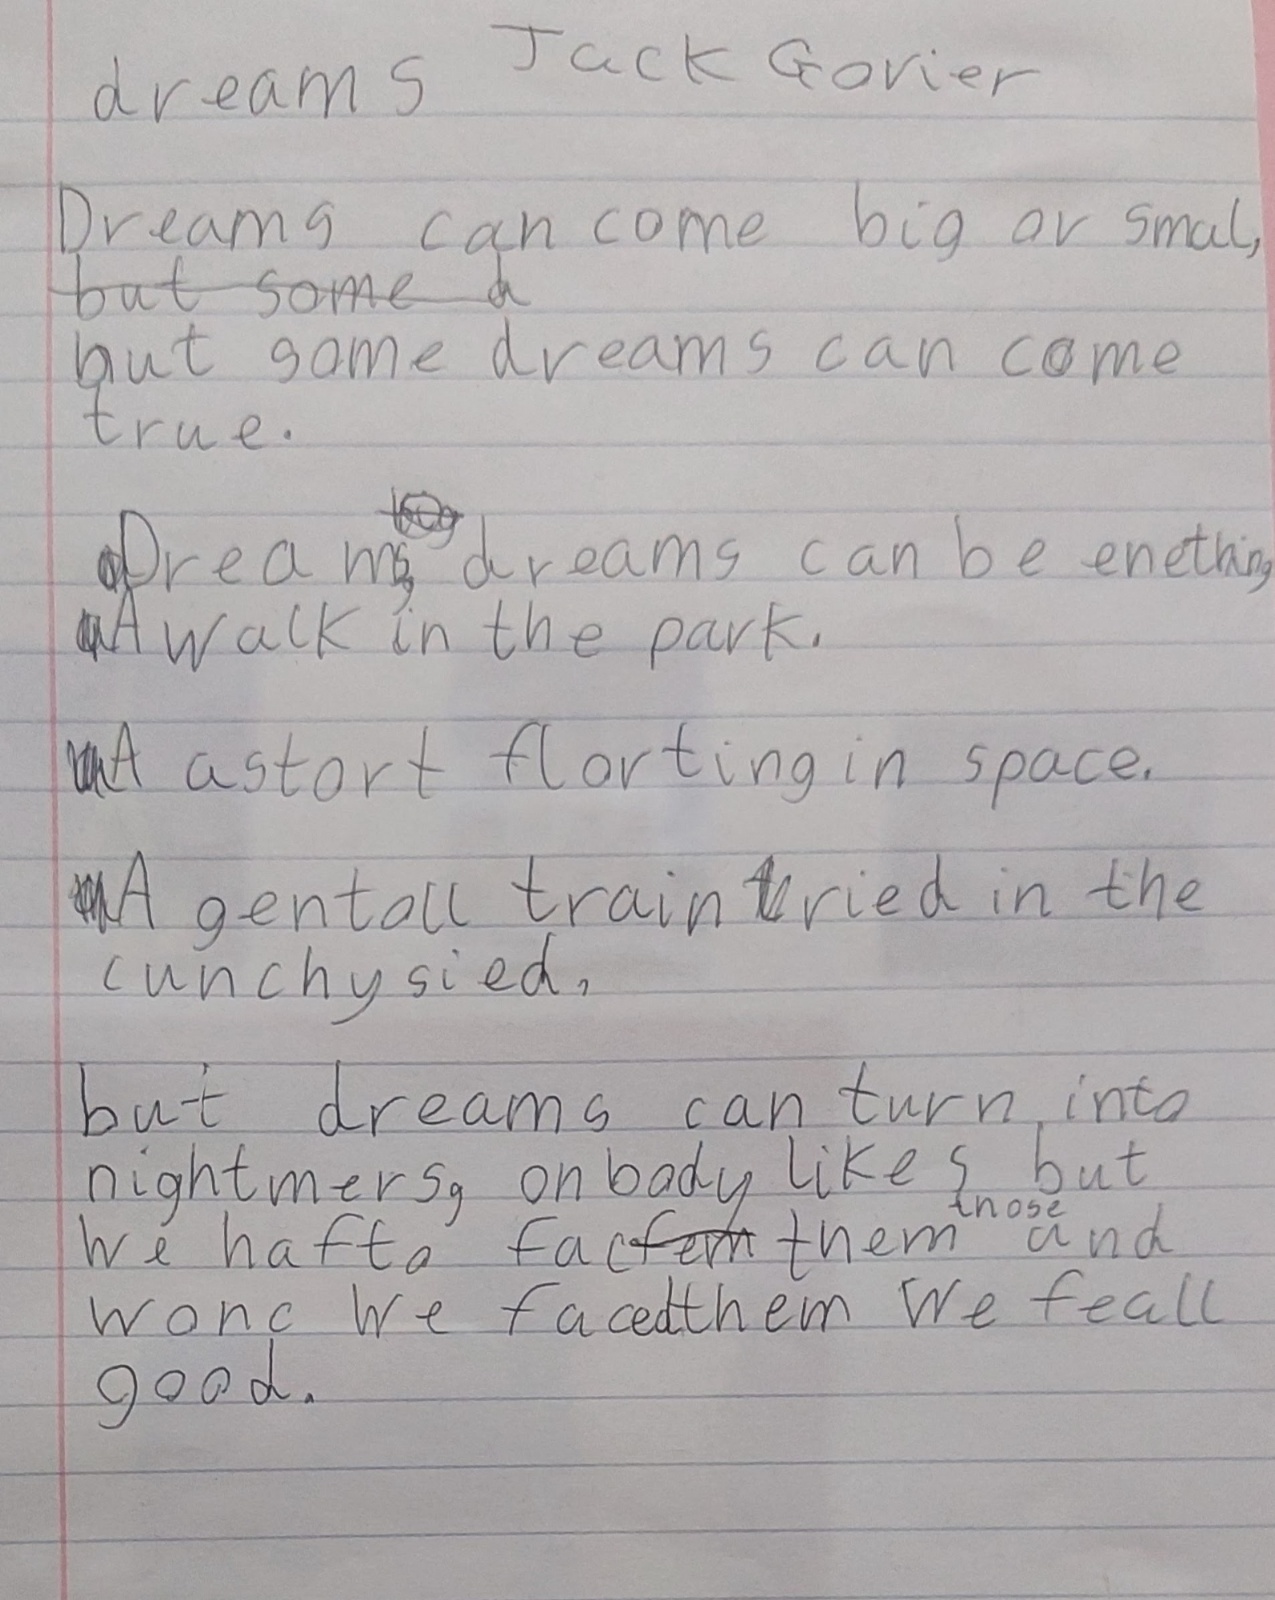 dreams Jack Govier
Dreams can come big or smal,
but some d
but some dreams can come
true.
Dreams, dreams can be enething
A walk in the park.
A astort florting in space.
A gentall train tried in the
cunchysied,
but dreams can turn into
nightmers, onbody likes but
those
we hafto fac them and
wonc We facedthem We feall
good.